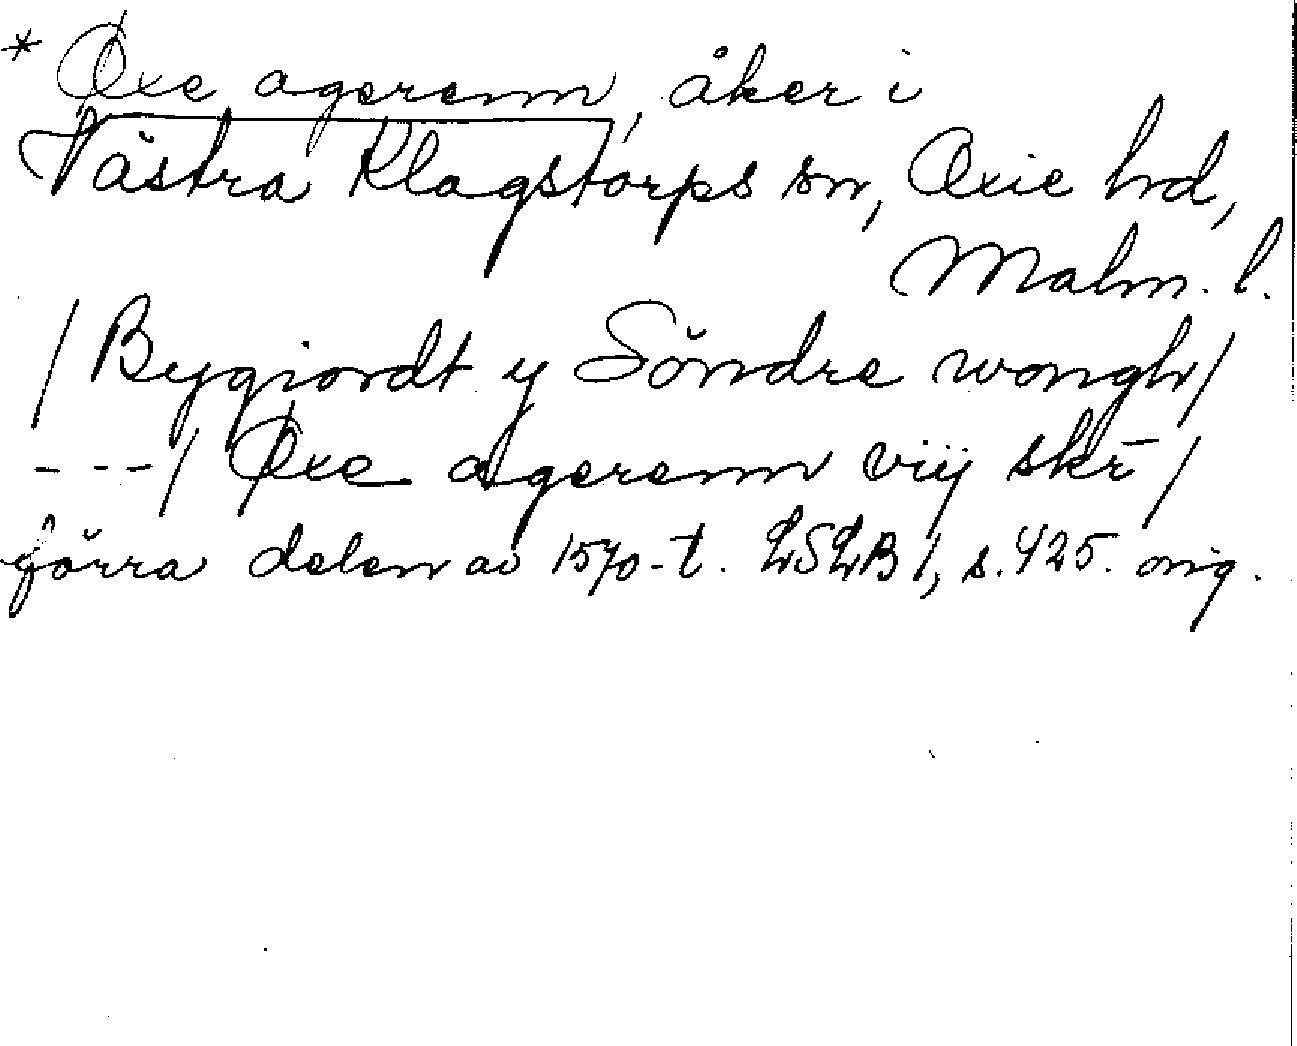 * Øxe agerenn, åker i
Västra Klagstorps sn, Oxie hd,
Malm. l.
/ Bygiordt y Söndre wongh /
- - - / Øxe agerenn vij skr̄ /
förra delen av 1570-t. LSLB 1, s. 425. orig.